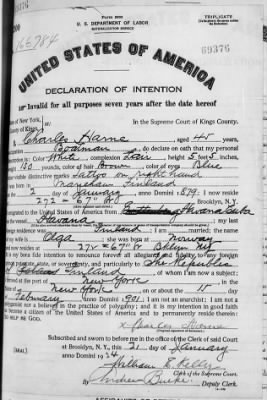 Form 2202
U. S. DEPARTMENT OF LABOR
NATURALIZATION SERVICE
TRIPLICATE
166784
69376
UNITED STATES OF AMERICA
DECLARATION OF INTENTION
Invalid for all purposes seven years after the date hereof
of New York,
County of Kings,
In the Supreme Court of Kings County.
Charles aged 45 years,
occupation Boatman, do declare on oath that my personal
description is: Color White, complexion height 5 feet 5 inches,
weight 150 pounds, color of hair Brown, color of eyes Blue
other visible distinctive marks tattoo on right hand
I was born in Finland
on the 2 day of January, anno Domini 1879; I now reside
at 272 - 67" Brooklyn, N.Y.
emigrated to the United States of America from Havana Cuba
on the vessel Havana
residence was married;
wife Olga she was born at Norway
and now resides at 272 - 67"
It is my bona fide intention to renounce forever all allegiance and fidelity to any foreign
prince, potentate, state, or sovereignty, and particularly to The Republic
of Finland, of whom I am now a subject;
I arrived at the port of New York
New York on or about the 15 day
February, anno Domini 1901; I am not an anarchist; I am not a
polygamist nor a believer in the practice of polygamy; and it is my intention in good faith
to become a citizen of the United States of America and to permanently reside therein:
SO HELP ME GOD.
x Charles
Subscribed and sworn to before me in the office of the Clerk of said Court
at Brooklyn, N.Y., this 21 day of January
anno Domini 1924
[SEAL]
William E. Kelly
Clerk of the Supreme Court.
By Burke, Deputy Clerk.